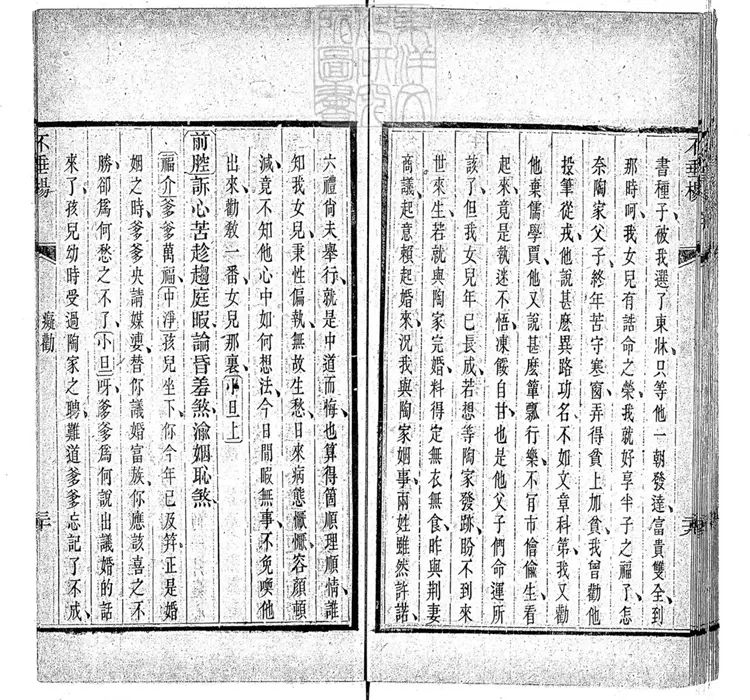 書種子被我選了東牀只等他一朝發達富貴雙全到
那時呵我女兒有誥命之榮我就好享半子之福了怎
奈陶家父子終年苦守寒窗弄得貧上加貧我曾勸他
投筆從戎他說甚麽異路功名不如文章科第我又勸
他棄儒學賈他又說甚麽簞瓢行樂不肯市儈偷生看
起來竟是執迷不悟凍餒自甘也是他父子們命運所
該了但我女兒年已長成若想等陶家發跡盼不到來
世來生若就與陶家完婚料得定無衣無食昨與荆妻
商議起意頼起婚來況我與陶家姻事兩姓雖然許諾
六禮尙未舉行就是中道而悔也算得箇順理順情誰
知我女兒秉性偏執無故生愁日來病態懨懨容顏頓
減竟不知他心中如何想法今日閒暇無事不免喚他
出來勸敎一番女兒那裏小旦上
前腔訴心苦趁趨庭暇論昏羞煞渝姻恥煞
福介爹爹萬福中淨孩兒坐下你今年已及笄正是婚
姻之時爹爹央請媒婆替你議婚富族你應該喜之不
勝卻爲何愁之不了小旦呀爹爹爲何說出議婚的話
來了孩兒幼時受過陶家之聘難道爹爹忘記了不成
不垂楊
癡勸
不垂楊